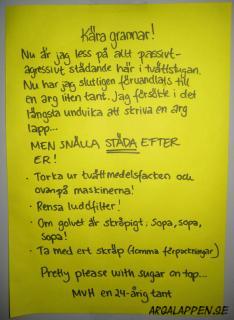 Kära grannar!
Nu är jag less på allt passivt-
agressivt städande här i tvättstugan.
Nu har jag slutligen förvandlats till
en arg liten tant. Jag försökte i det
längsta undvika att skriva en arg
lapp...
MEN SNÄLLA STÄDA EFTER
ER!
· Torka ur tvättmedelsfacken och
ovanpå maskinerna!
· Rensa luddfilter!
· Om golvet är skräpigt: Sopa, sopa,
sopa!
· Ta med ert skräp (tomma förpackningar)
Pretty please with sugar on top...
MVH en 24-årig tant
ARGALAPPEN.SE